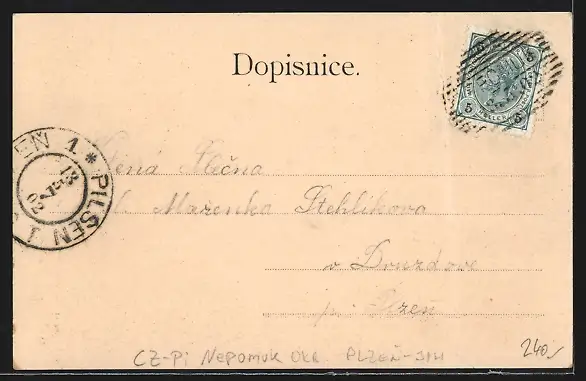 Dopisnice.
5 5
5 5
PILSEN 1 * PILSEN 1
ená Slečna
Maženka Stehlikova
v Druzdove
p. Plzeň
CZ-Pi Nepomuk Okr. PLZEŇ-JIH
240,-